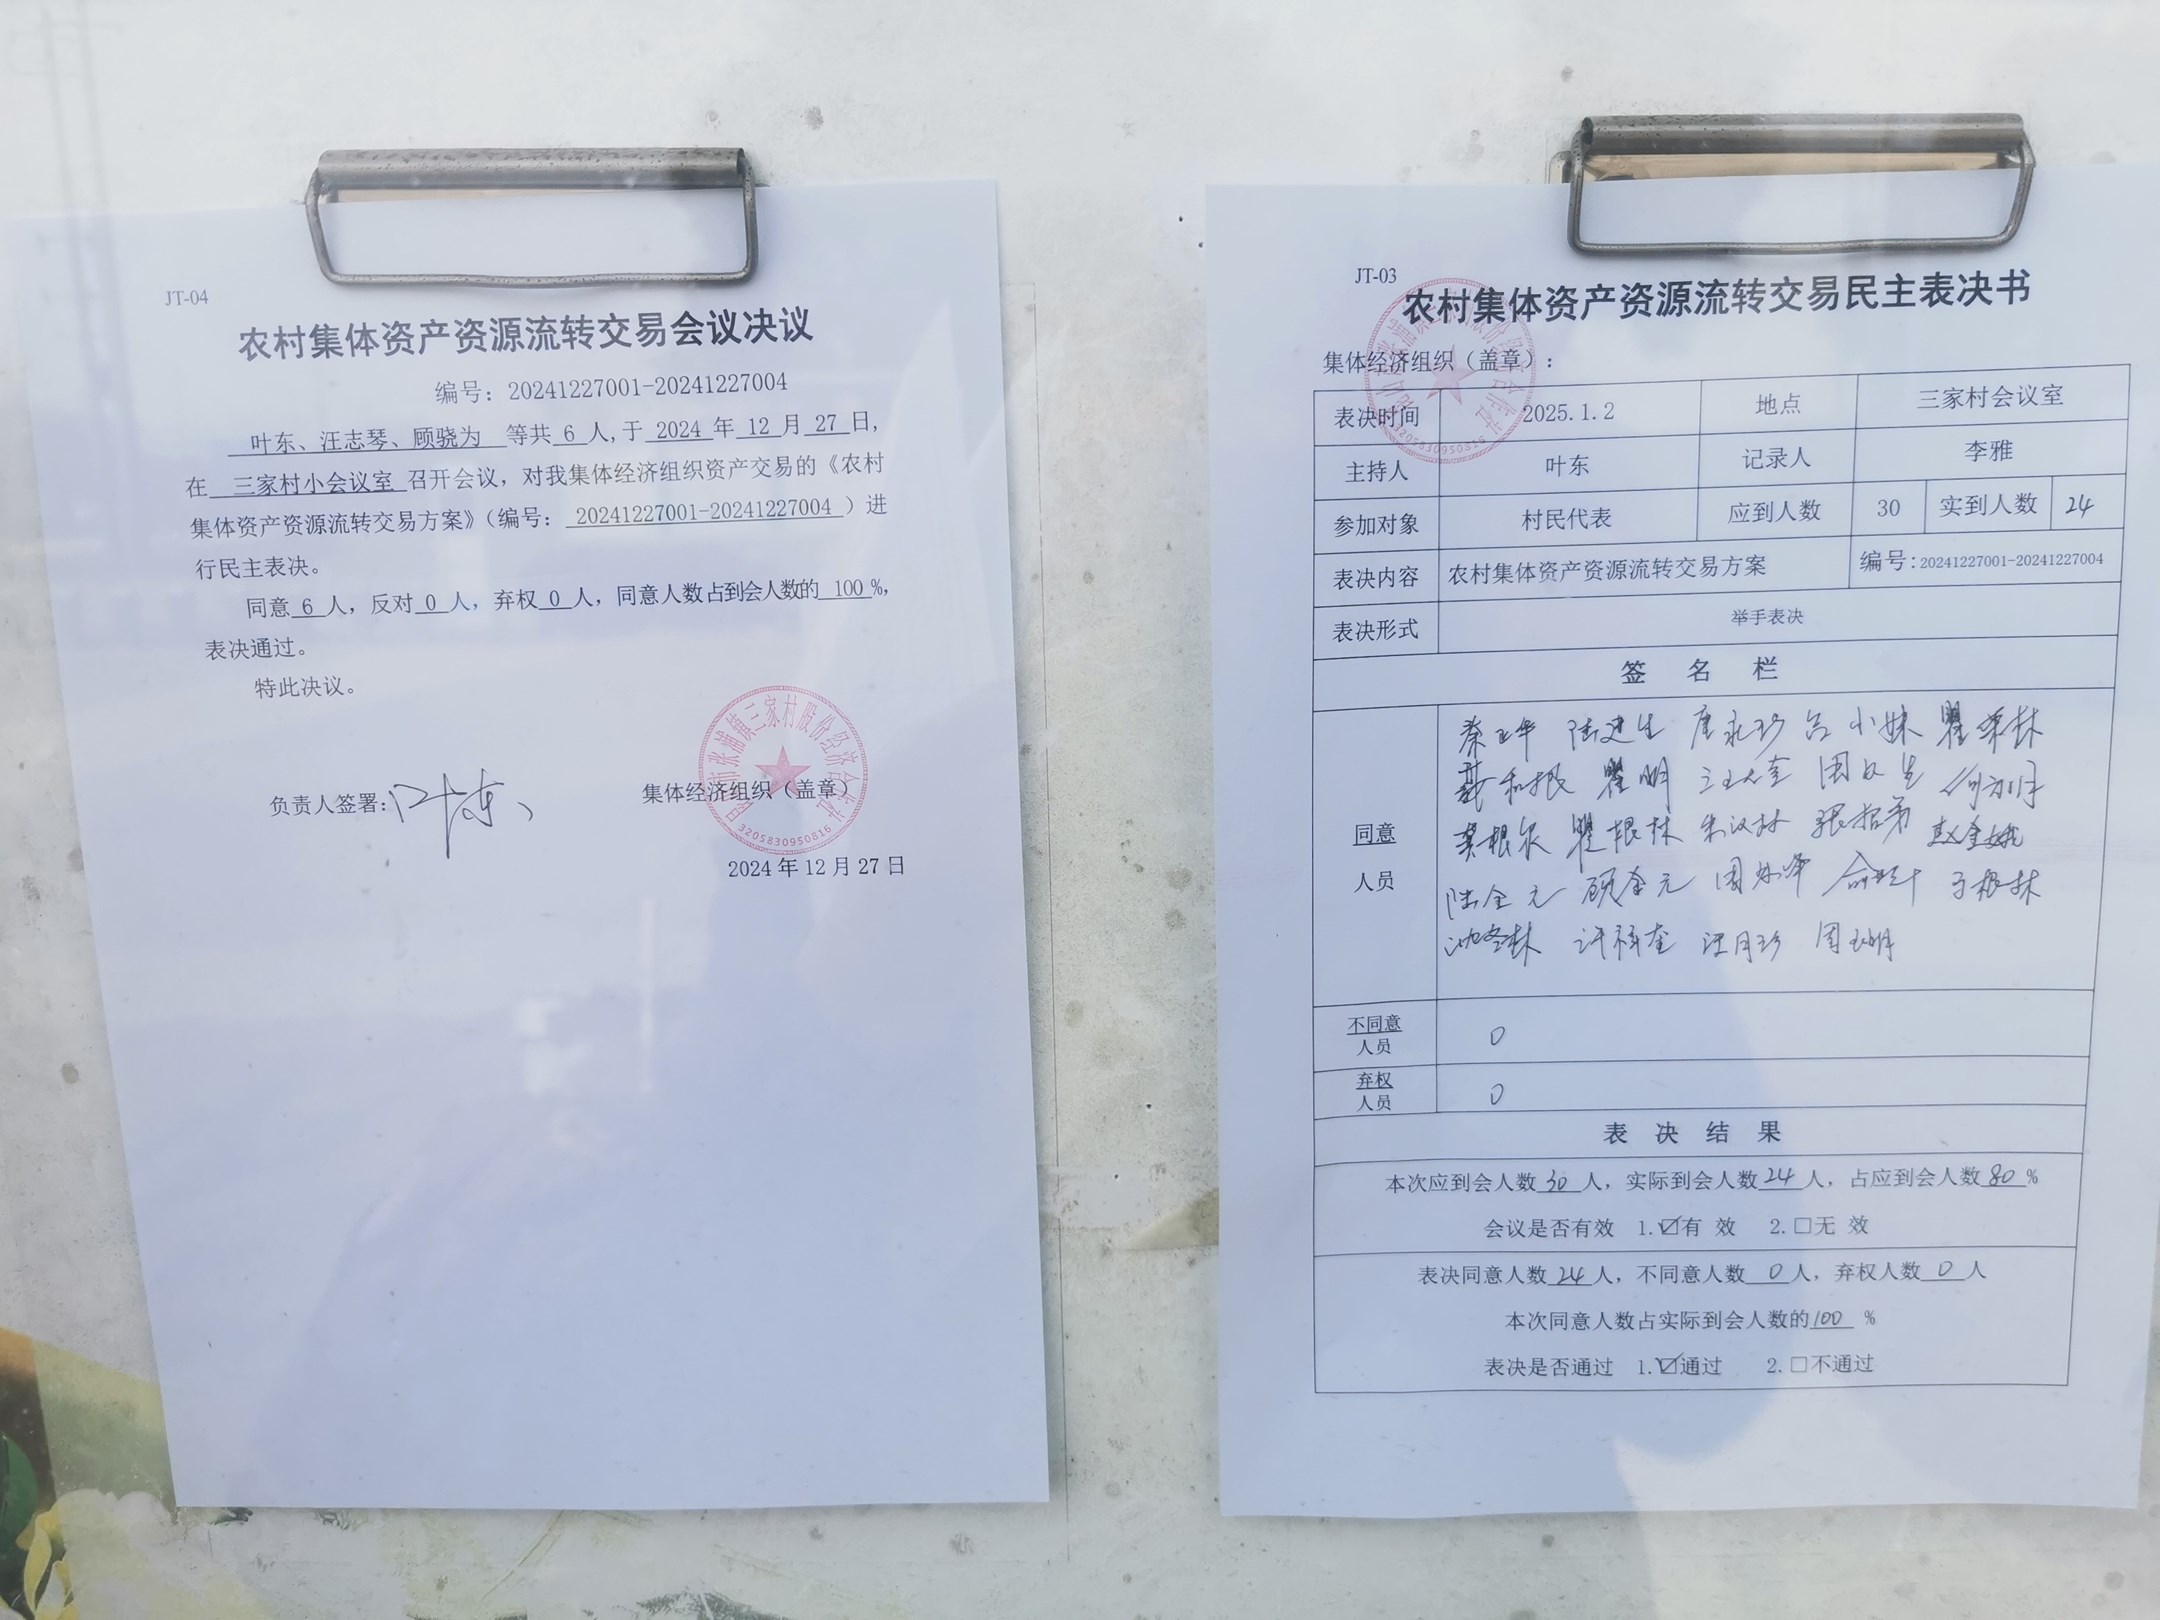 JT-04
农村集体资产资源流转交易会议决议
编号：20241227001-20241227004
叶东、汪志琴、顾骁为 等共 6 人,于 2024 年 12 月 27 日,
在 三家村小会议室 召开会议，对我集体经济组织资产交易的《农村
集体资产资源流转交易方案》（编号： 20241227001-20241227004 ）进
行民主表决。
同意 6 人，反对 0 人，弃权 0 人，同意人数占到会人数的 100 %,
表决通过。
特此决议。
负责人签署: 叶东
集体经济组织（盖章）
市张浦镇三家村股份经济合
3205830950816
2024 年 12 月 27 日
JT-03
农村集体资产资源流转交易民主表决书
集体经济组织（盖章）：
3205830950816
表决时间 2025.1.2 地点 三家村会议室
主持人 叶东 记录人 李雅
参加对象 村民代表 应到人数 30 实到人数 24
表决内容 农村集体资产资源流转交易方案 编号:20241227001-20241227004
表决形式 举手表决
签 名 栏
陆建生 唐永珍 吕小妹 瞿荣林
和根 瞿明
同意 瞿根林 张招弟 赵金娥
人员
陆全元 顾全元
许祥奎 汪月珍 周玉明
不同意
人员 0
弃权
人员 0
表 决 结 果
本次应到会人数 30 人，实际到会人数 24 人，占应到会人数 80 %
会议是否有效 1.☑有 效 2.□无 效
表决同意人数 24 人，不同意人数 0 人，弃权人数 0 人
本次同意人数占实际到会人数的 100 %
表决是否通过 1.☑通过 2.□不通过